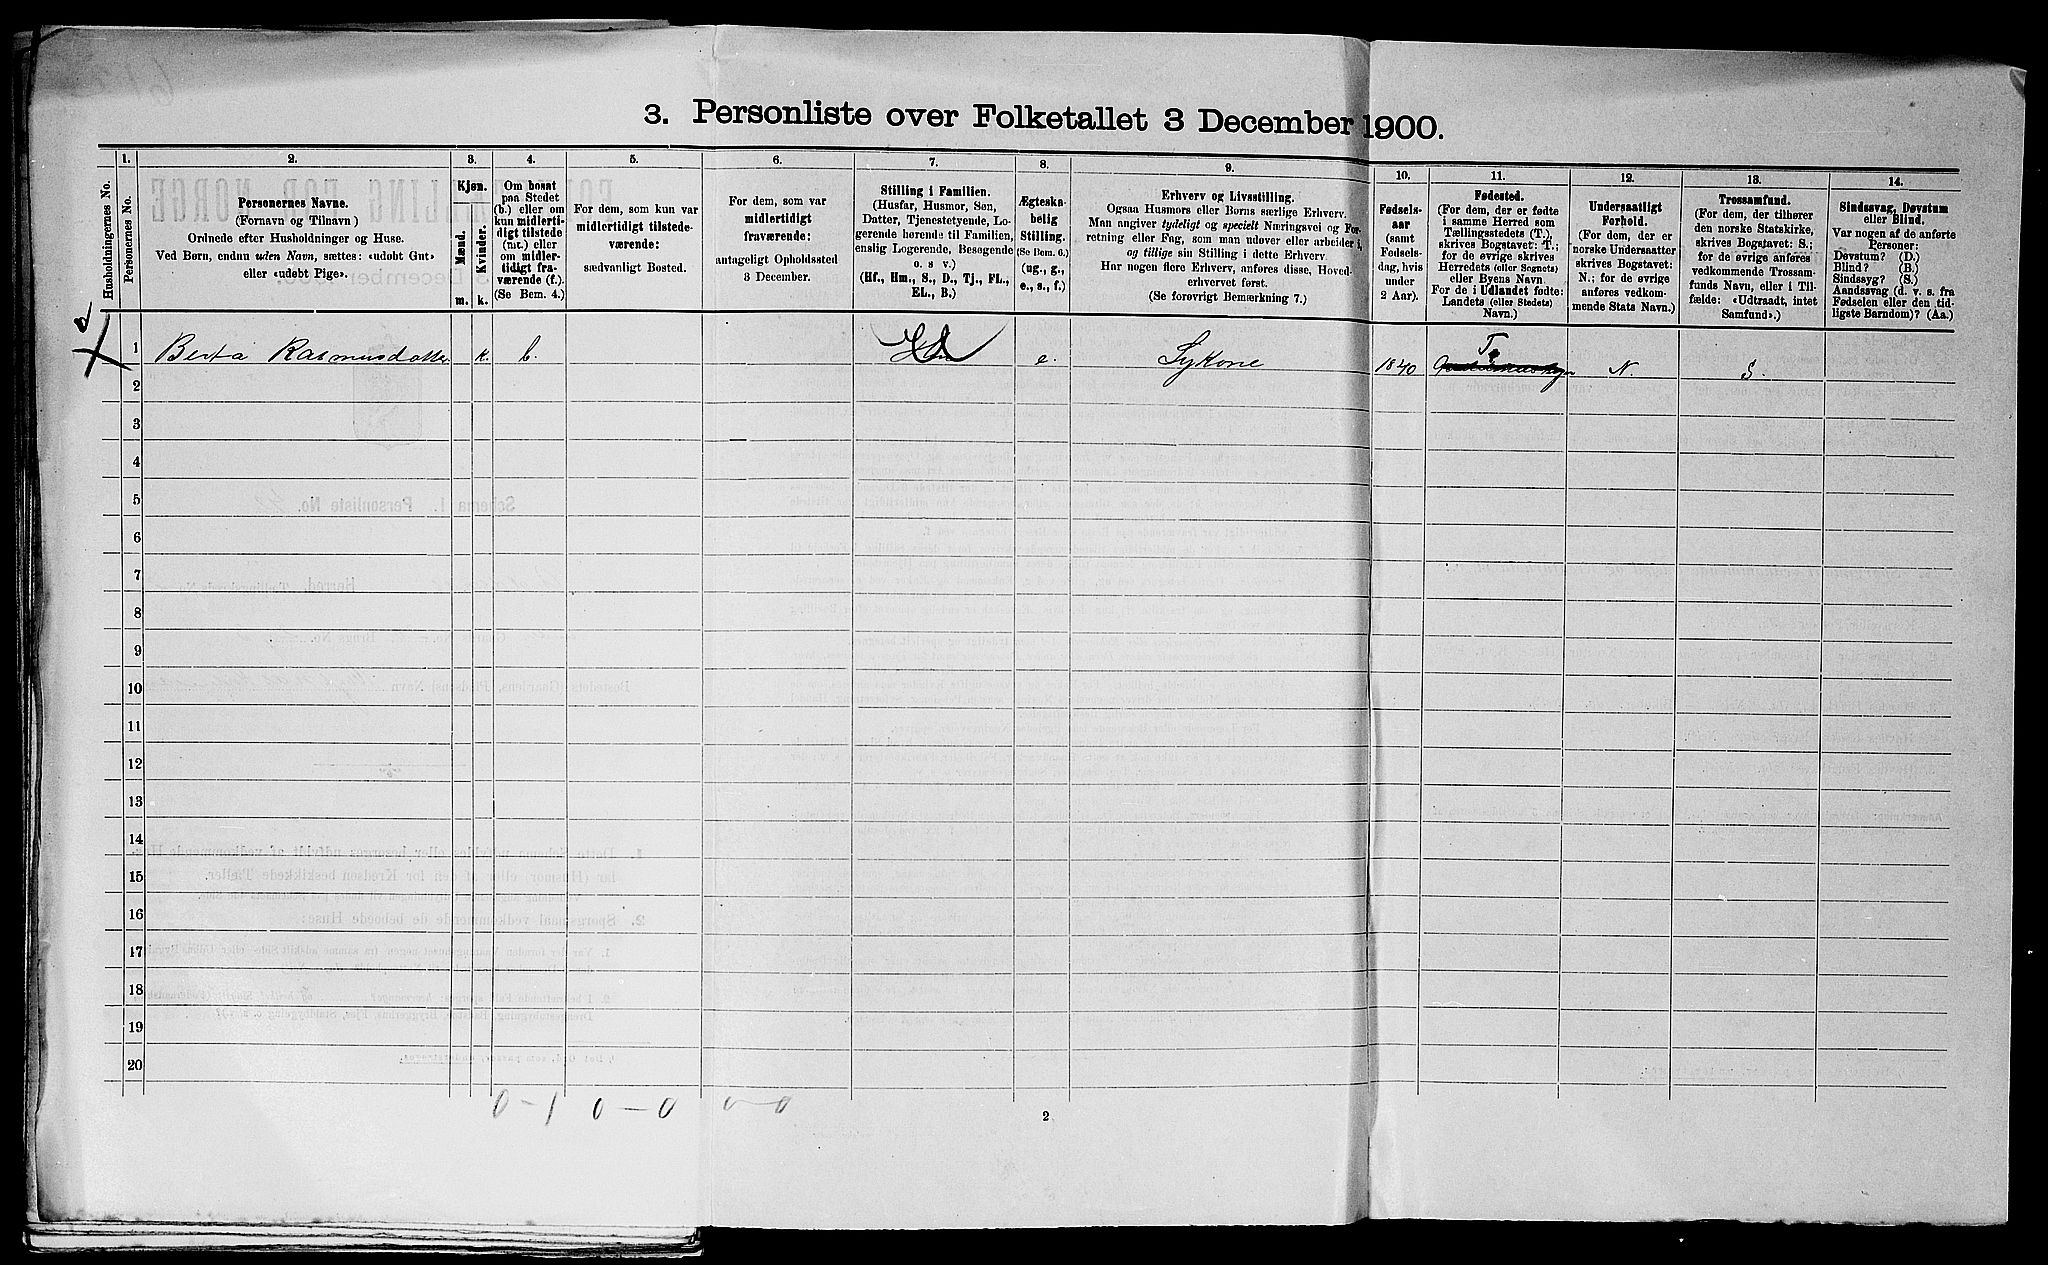 3. Personliste over Folketallet 3 December 1900.
1. 2. 3. 4. 5. 6. 7. 8. 9. 10. 11. 12. 13. 14.
Husholdningernes No.
Personernes No.
Personernes Navne.
(Fornavn og Tilnavn)
Ordnede efter Husholdninger og Huse.
Ved Børn, endnu uden Navn, sættes: «udøbt Gut»
eller «udøbt Pige».
Kjøn.
Mænd.
Kvinder.
m. k.
Om bosat
paa Stedet
(b.) eller om
kun midlerti-
digt tilstede
(mt.) eller
om midler-
tidigt fra-
værende (f.).
(Se Bem. 4.)
For dem, som kun var
midlertidigt tilstede-
værende:
sædvanligt Bosted.
For dem, som var
midlertidigt
fraværende:
antageligt Opholdssted
3 December.
Stilling i Familien.
(Husfar, Husmor, Søn,
Datter, Tjenestetyende, Lo-
gerende hørende til Familien,
enslig Logerende, Besøgende
o. s v.)
(Hf., Hm., S., D., Tj., FL.,
EL., B.)
Ægteska-
belig
Stilling.
(Se Bem. 6.)
(ug., g.,
e., s., f.)
Erhverv og Livsstilling.
Ogsaa Husmors eller Børns særlige Erhverv.
Man angiver tydeligt og specielt Næringsvei og For-
retning eller Fag, som man udøver eller arbeider i,
og tillige sin Stilling i dette Erhverv.
Har nogen flere Erhverv, anføres disse, Hoved-
erhvervet først.
(Se forøvrigt Bemærkning 7.)
Fødsels-
aar
(samt
Fødsels-
dag, hvis
under
2 Aar).
Fødested.
(For dem, der er fødte
i samme Herred som
Tællingsstedets (T.),
skrives Bogstavet: T.;
for de øvrige skrives
Herredets (eller Sognets)
eller Byens Navn.
For de i Udlandet fødte:
Landets (eller Stedets)
Navn.)
Undersaatligt
Forhold.
(For dem, der er
norske Undersaatter
skrives Bogstavet:
N.; for de øvrige
anføres vedkom-
mende Stats Navn.)
Trossamfund.
(For dem, der tilhører
den norske Statskirke,
skrives Bogstavet: S.;
for de øvrige anføres
vedkommende Trossam-
funds Navn, eller i Til-
fælde: «Udtraadt, intet
Samfund».)
Sindssvag, Døvstum
eller Blind.
Var nogen af de anførte
Personer:
Døvstum? (D.)
Blind? (B.)
Sindssyg? (S.)
Aandssvag (d. v. s. fra
Fødselen eller den tid-
ligste Barndom)? (Aa.)
1 Berta Rasmusdatter k. b. e. Sykone 1840 T. N. S.
2
3
4
5
6
7
8
9
10
11
12
13
14
15
16
17
18
19
20
0-1 0-0 0-0
2